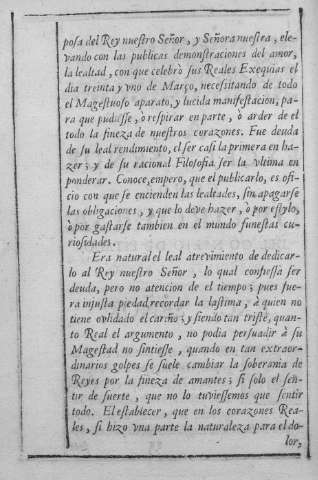 posa del Rey nuestro Señor, y Señora nuestra, ele-
vando con las publicas demonstraciones del amor,
la lealtad, con que celebrò sus Reales Exequias el
dia treinta y vno de Março, necessitando de todo
el Magestuoso aparato, y lucida manifestacion, pa-
ra que pudiesse, ò respirar en parte, ò arder de el
todo la fineza de nuestros corazones. Fue deuda
de su leal rendimiento, el ser casi la primera en ha-
zer; y de su racional Filosofia ser la vltima en
ponderar. Conoce, empero, que el publicarlo, es ofi-
cio con que se encienden las lealtades, sin apagarse
las obligaciones, y que lo deve hazer, ò por estylo,
ò por gastarse tambien en el mundo funestas cu-
riosidades.
Era natural el leal atrevimiento de dedicar-
lo al Rey nuestro Señor, lo qual confiessa ser
deuda, pero no atencion de el tiempo; pues fue-
ra injusta piedad, recordar la lastima, à quien no
tiene orvidado el cariño; y siendo tan triste, quan-
to Real el argumento, no podia persuadir à su
Magestad no sintiesse, quando en tan extraor-
dinarios golpes se suele cambiar la soberania de
Reyes por la fineza de amantes; si solo el sen-
tir de suerte, que no lo tuviessemos que sentir
todo. El establecer, que en los corazones Rea-
les, si hizo vna parte la naturaleza para el do-
lor,